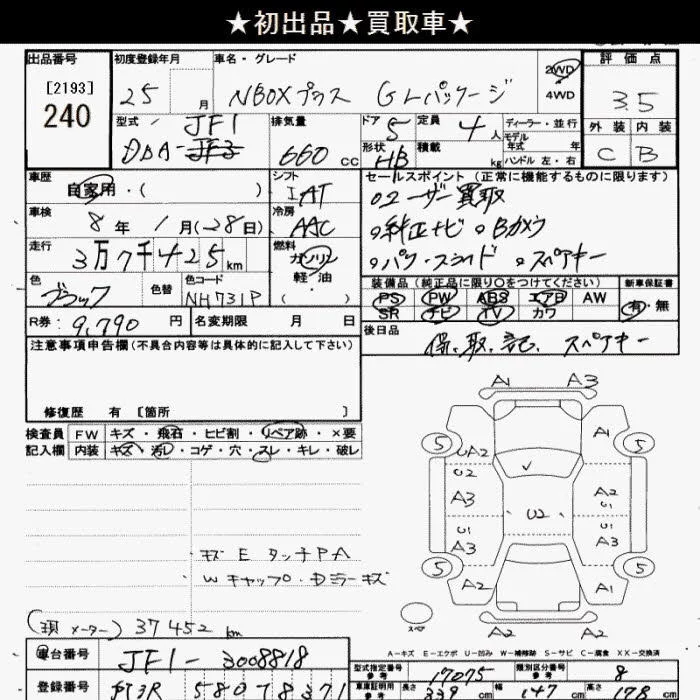 ★初出品★買取車★
出品番号
[2193]
240
初度登録年月
25 月
車名・グレード
NBOXプラス GLパッケージ
2WD
4WD
評価点
3.5
外装 内装
C B
型式
JF1
DBA-JF3
排気量
660 cc
ドア
5
定員
4人
形状
HB
積載
kg
ディーラー・並行
モデル
年式 年
ハンドル 左・右
車歴
自家用・( )
シフト
IAT
セールスポイント (正常に機能するものに限ります)
ユーザー買取
純正ナビ Bカメラ
パワースライド スペアキー
車検
8年 1月(28日)
冷房
AAC
走行
3万7千425km
燃料
ガソリン
軽・油
( )
色
ブラック
色替
色コード
NH731P
装備品 (純正品に限り○をつけてください)
PS PW ABS エアB AW
SR ナビ TV カワ
新車保証書
有・無
R券 9,790円
名変期限 月 日
後日品
保、取、記、スペアキー
注意事項申告欄(不具合内容等は具体的に記入して下さい)
修復歴 有 [箇所 ]
検査員
記入欄
FW キズ・飛石・ヒビ割・リペア跡・×要
内装 キズ・汚レ・コゲ・穴・スレ・キレ・破レ
A1 A3
5 A1 5
UA2
U2
A3
A2
U1
U2
U1
A3
U1
A3
5 5
A2 A1
A2 A2
スペア
キズ E タッチPA
Wキャップ・Dミラーキズ
(現メーター) 37452 km
A-キズ E-エクボ U-凹み W-補修跡 S-サビ C-腐食 XX-交換済
車台番号
JF1-3008818
型式指定番号
参考
17075
類別区分番号
参考
8
登録番号
58078371
車庫証明用
参考
長さ 339 cm
幅 147 cm
高さ 178 cm